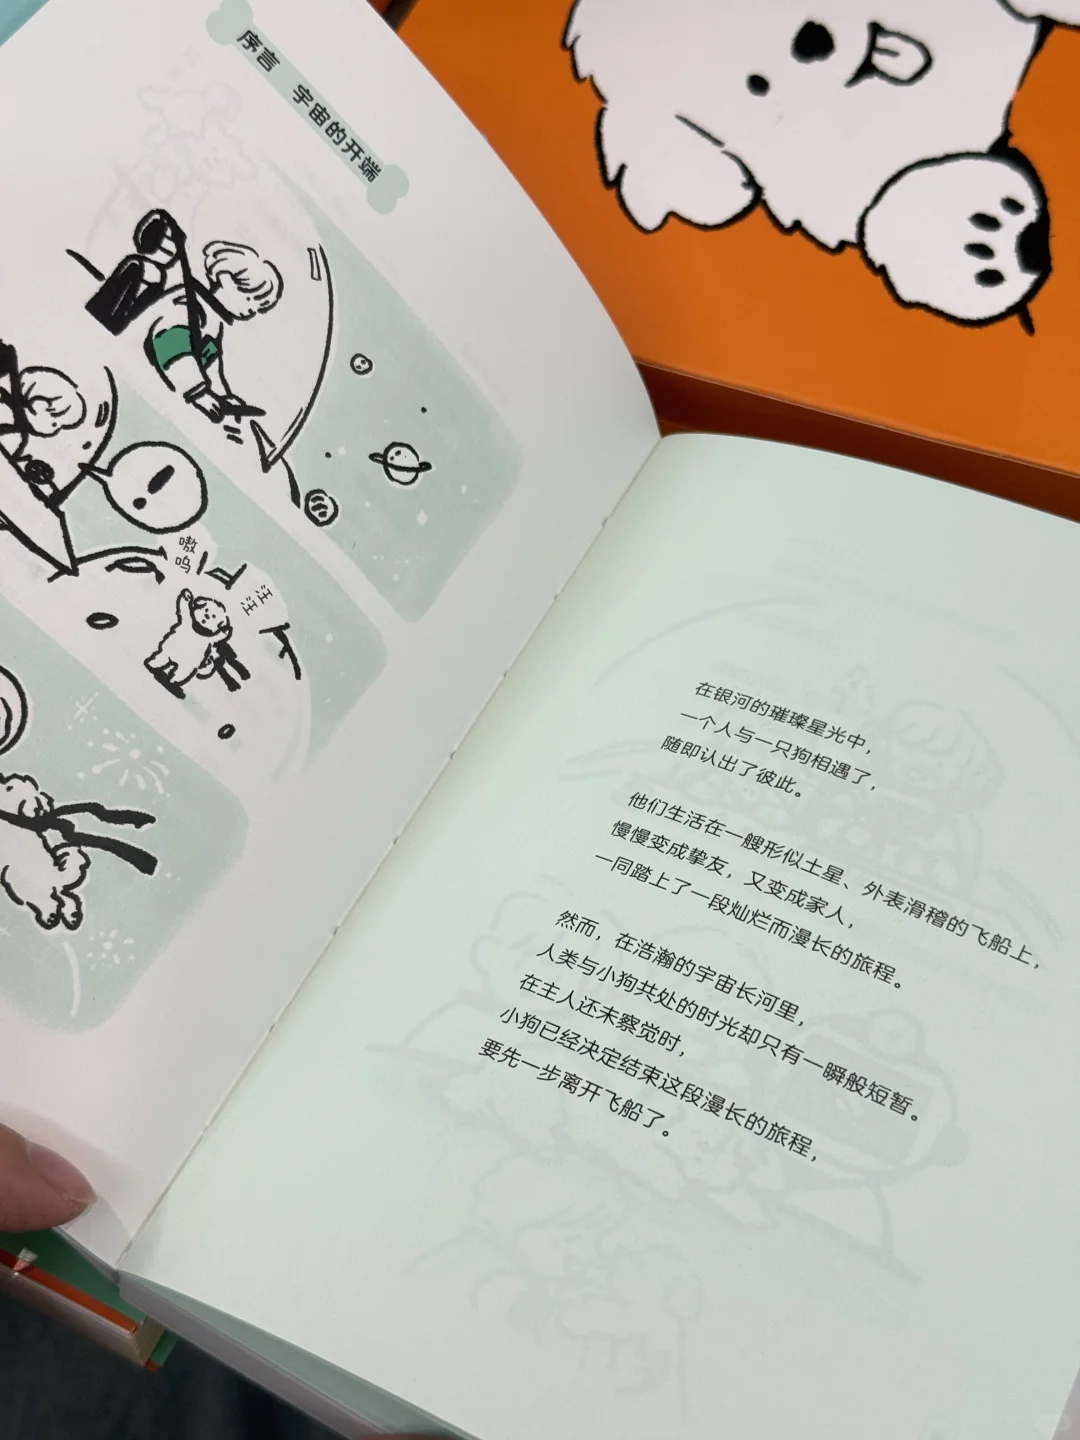 序言 宇宙的开端
嗷
呜
汪
汪
在银河的璀璨星光中，
一个人与一只狗相遇了，
随即认出了彼此。
他们生活在一艘形似土星、外表滑稽的飞船上，
慢慢变成挚友，又变成家人，
一同踏上了一段灿烂而漫长的旅程。
然而，在浩瀚的宇宙长河里，
人类与小狗共处的时光却只有一瞬般短暂。
在主人还未察觉时，
小狗已经决定结束这段漫长的旅程，
要先一步离开飞船了。